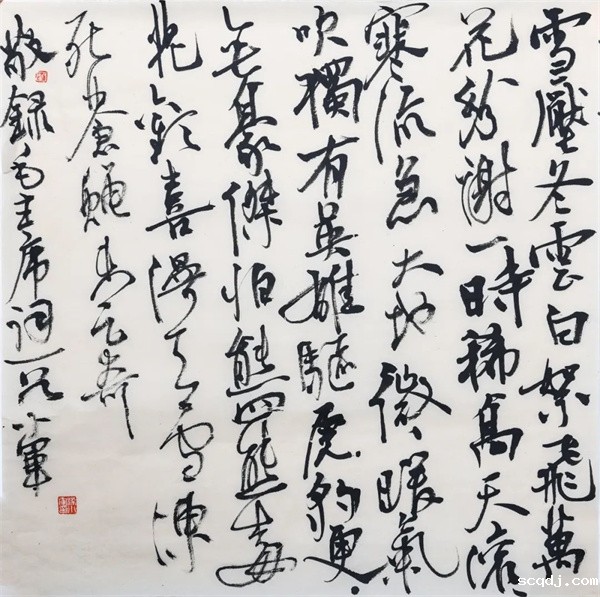 雪壓冬雲白絮飛萬
花紛謝一時稀高天滾、
寒流急大地微、暖氣
吹獨有英雄驅虎豹更
無豪傑怕熊羆梅
花歡喜漫天雪凍
死蒼蠅未足奇
敬録毛主席詞 小軍
scqdj.com